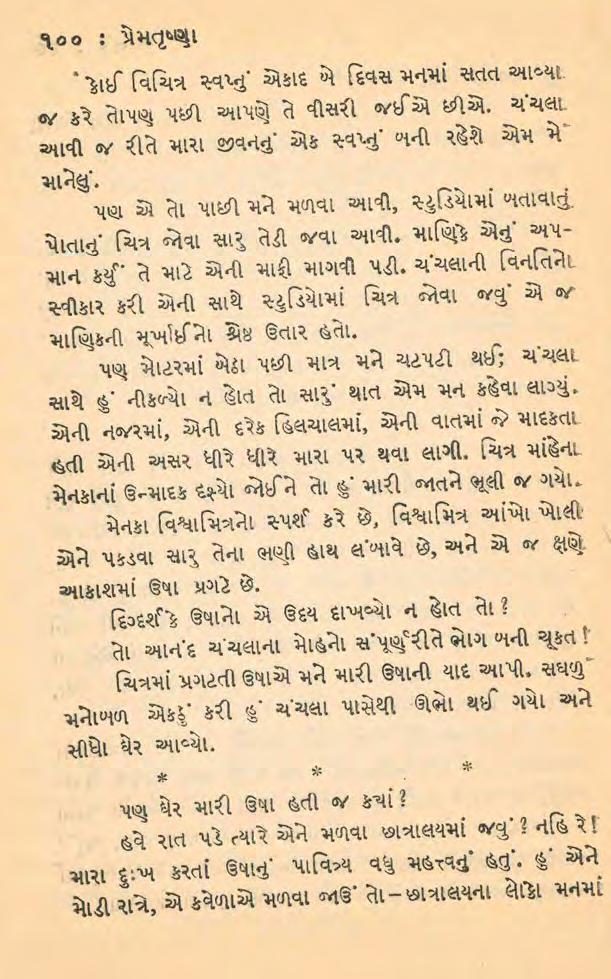 ૧૦૦ : પ્રેમતૃષ્ણા
કોઈ વિચિત્ર સ્વપ્નું એકાદ બે દિવસ મનમાં સતત આવ્યા
જ કરે તોપણ પછી આપણે તે વીસરી જઈએ છીએ. ચંચલા
આવી જ રીતે મારા જીવનનું એક સ્વપ્નું બની રહેશે એમ મેં
માનેલું.
પણ એ તો પાછી મને મળવા આવી, સ્ટુડિયોમાં બતાવાતું
પોતાનું ચિત્ર જોવા સારુ તેડી જવા આવી. માણિકે એનું અપ-
માન કર્યું તે માટે એની માફી માગવી પડી. ચંચલાની વિનતિનો
સ્વીકાર કરી એની સાથે સ્ટુડિયોમાં ચિત્ર જોવા જવું એ જ
માણિકની મૂર્ખાઈનો શ્રેષ્ઠ ઉતાર હતો.
પણ મોટરમાં બેઠા પછી માત્ર મને ચટપટી થઈ; ચંચલા
સાથે હું નીકળ્યો ન હોત તો સારું થાત એમ મન કહેવા લાગ્યું.
એની નજરમાં, એની દરેક હિલચાલમાં, એની વાતમાં જે માદકતા
હતી એની અસર ધીરે ધીરે મારા પર થવા લાગી. ચિત્ર માંહેના
મેનકાનાં ઉન્માદક દૃશ્યો જોઈને તો હું મારી જાતને ભૂલી જ ગયો.
મેનકા વિશ્વામિત્રનો સ્પર્શ કરે છે, વિશ્વામિત્ર આંખો ખોલી
એને પકડવા સારુ તેના ભણી હાથ લંબાવે છે, અને એ જ ક્ષણે
આકાશમાં ઉષા પ્રગટે છે.
દિગ્દર્શકે ઉષાનો એ ઉદય દાખવ્યો ન હોત તો?
તો આનંદ ચંચલાના મોહનો સંપૂર્ણ રીતે ભોગ બની ચૂકત!
ચિત્રમાં પ્રગટતી ઉષાએ મને મારી ઉષાની યાદ આપી. સઘળું
મનોબળ એકઠું કરી હું ચંચલા પાસેથી ઊભો થઈ ગયો અને
સીધો ઘેર આવ્યો.
* * *
પણ ઘેર મારી ઉષા હતી જ ક્યાં?
હવે રાત પડે ત્યારે એને મળવા છાત્રાલયમાં જવું? નહિ રે!
મારા દુઃખ કરતાં ઉષાનું પાવિત્ર્ય વધુ મહત્ત્વનું હતું. હું એને
મોડી રાત્રે, એ કવેળાએ મળવા જાઉં તો–છાત્રાલયના લોકો મનમાં